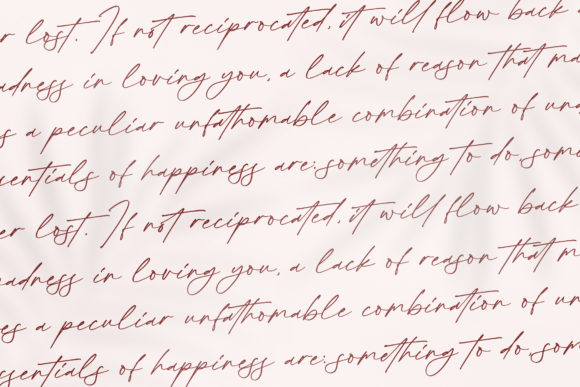 er lost. If not reciprocated, it will flow back
adness in loving you, a lack of reason that ma
es a peculiar unfathomable combination of un
sentials of happiness are: something to do, som
er lost. If not reciprocated, it will flow back
eadness in loving you, a lack of reason that m
es a peculiar unfathomable combination of un
ssentials of happiness are: something to do, som